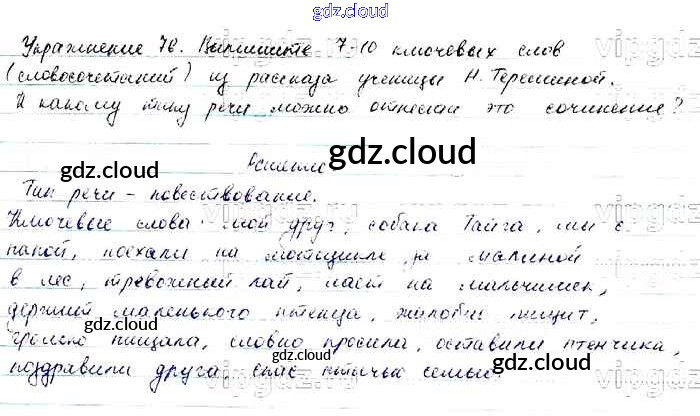 gdz.cloud
Упражнение 76. Выпишите 7-10 ключевых слов
(словосочетаний) из рассказа ученицы Н. Терешиной.
К какому типу речи можно отнести это сочинение?
gdz.cloud
gdz.cloud
Тип речи - повествование.
Ключевые слова: мой друг, собака Тайга, мы с
папой, поехали на мотоцикле за малиной
в лес, тревожный лай, лает на мальчишек,
gdz.cloud
держит маленького птенца, жалобно пищит,
gdz.cloud
громко пищала, словно просила, оставили птенчика,
gdz.cloud
поздравили друга, спас птичью семью.
vipgdz.ru
vipgdz